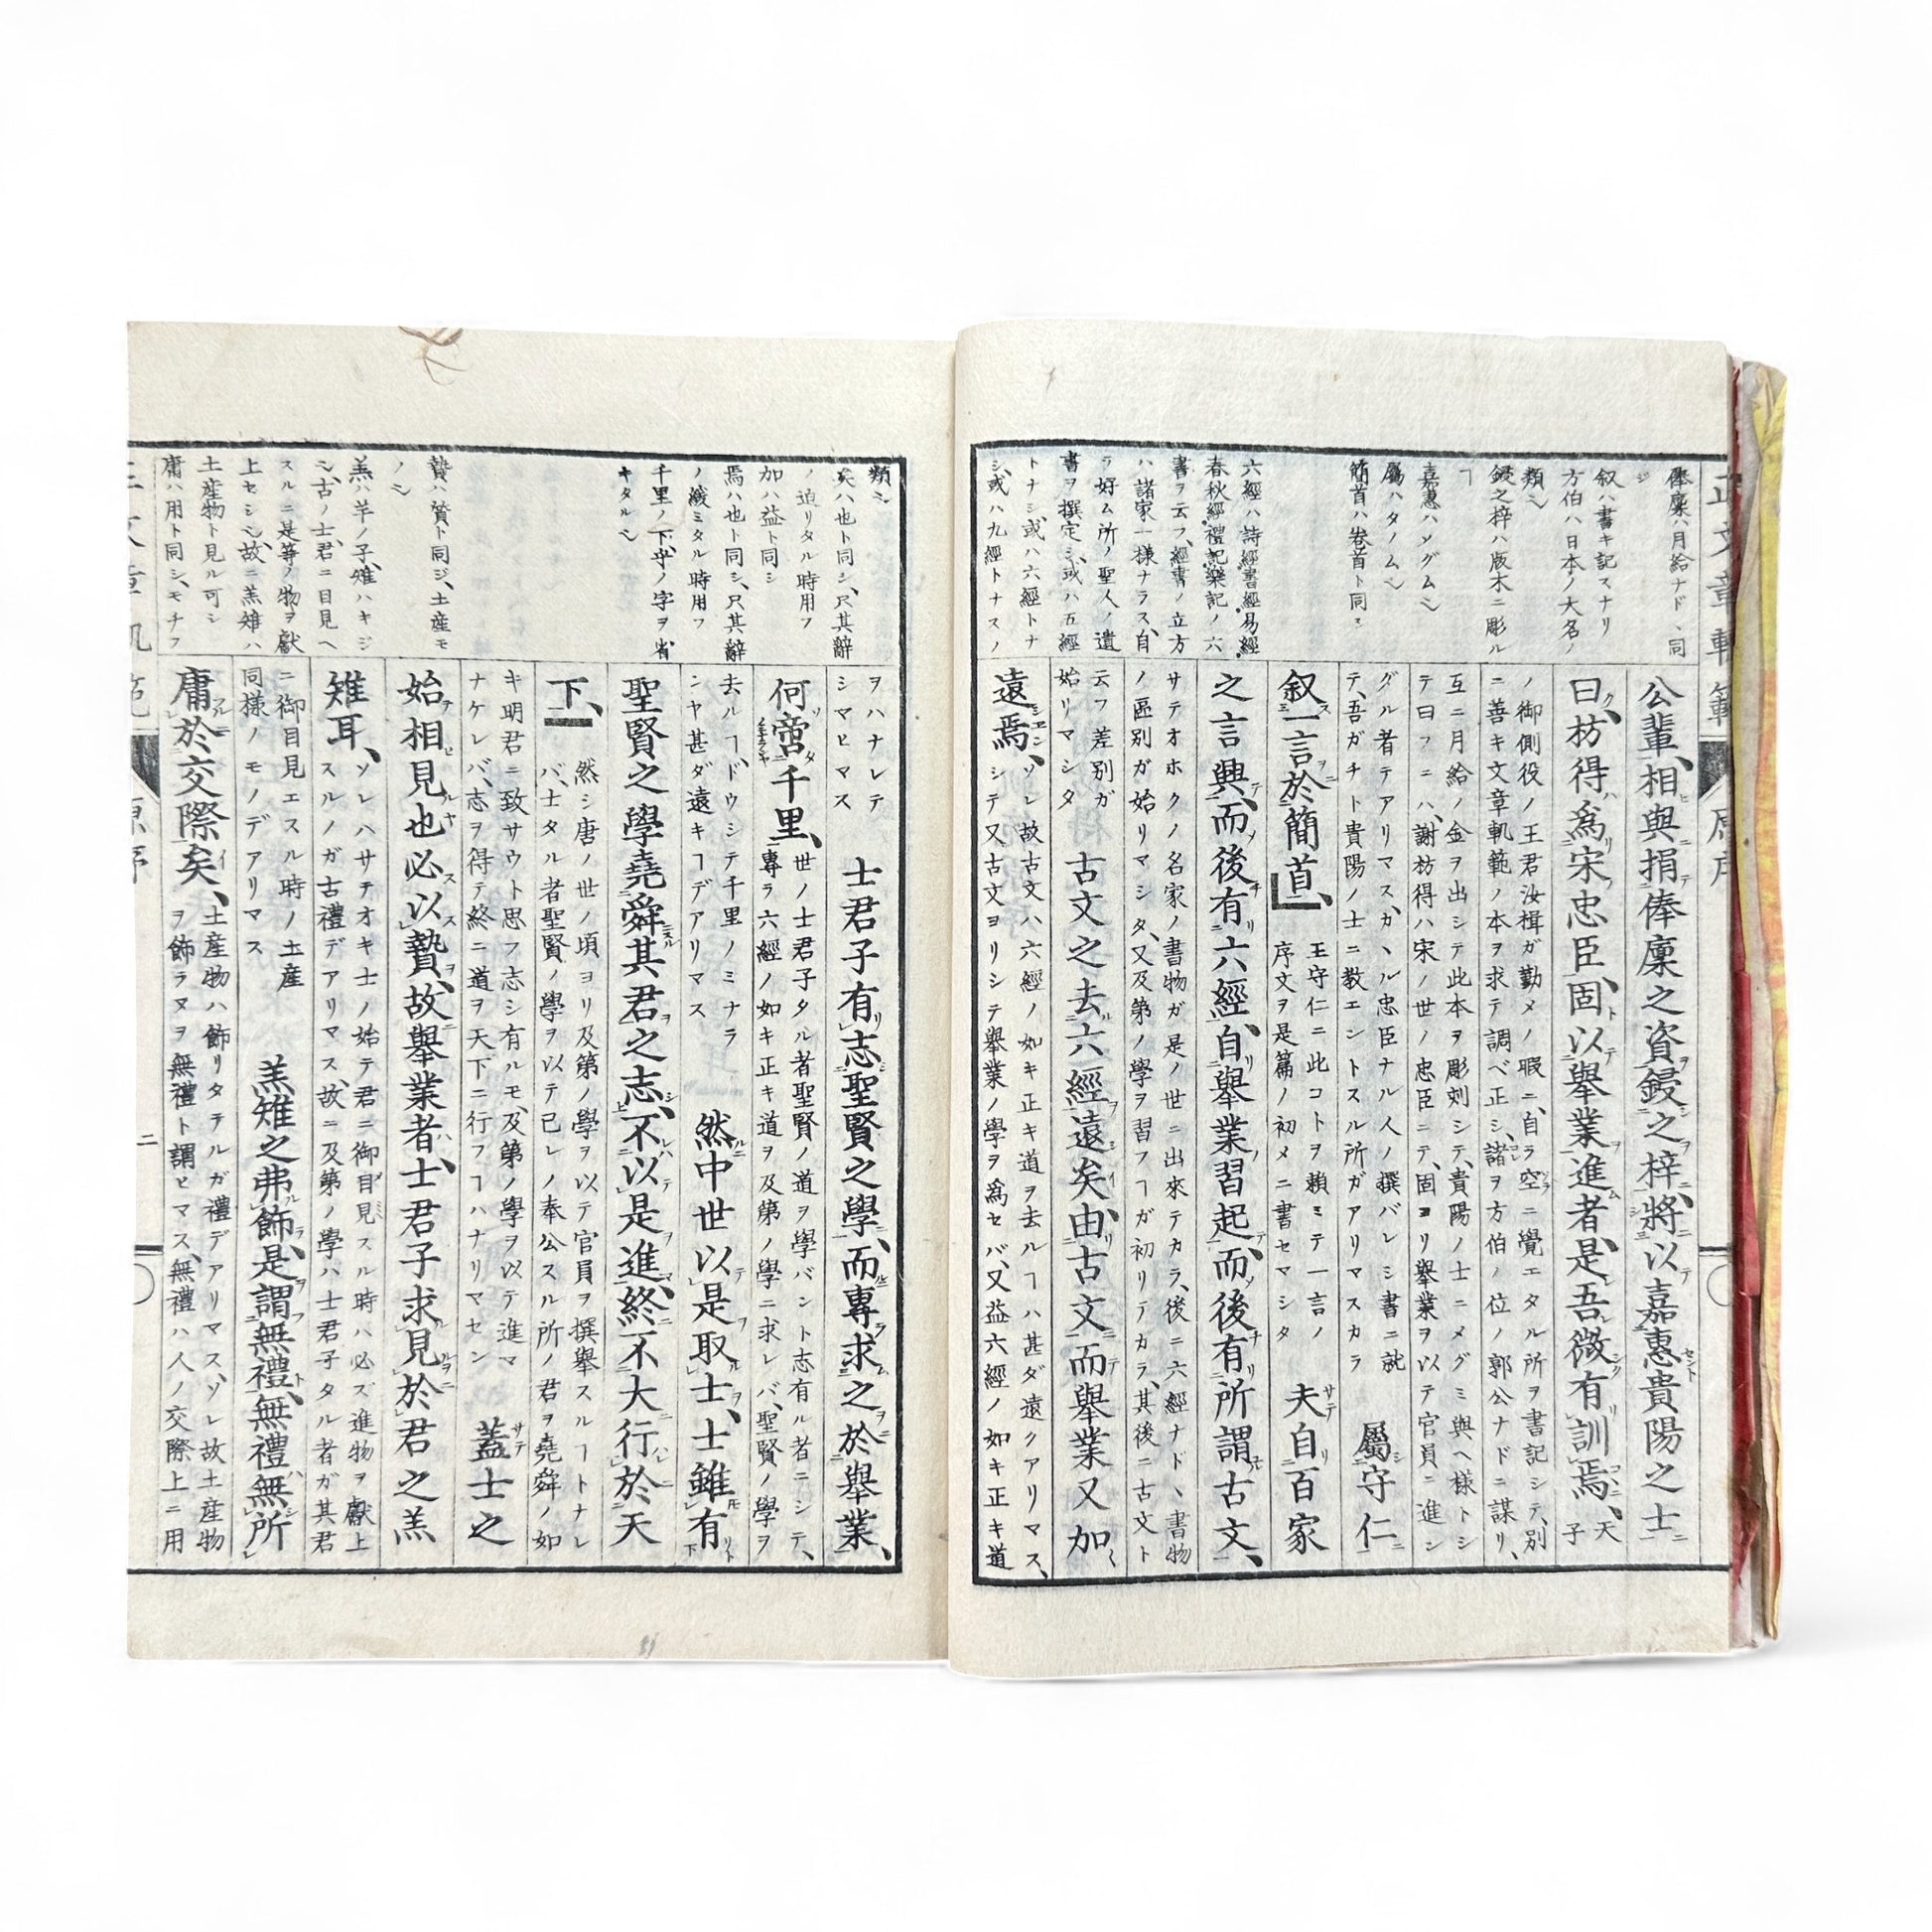 正文章軌範
原序
俸廩ハ月給ナド、同
ジ
叙ハ書キ記スナリ
方伯ハ日本ノ大名ノ
類
鋟之梓ハ版木ニ彫ル
ヿ
嘉惠ハ
屬ハタノム
簡首ハ巻首ト同シ
六經ハ詩經書經易經
春秋經禮記樂記ノ六
書ヲ云フ、經書ノ立方
ハ諸家一樣ナラス、自
ラ好ム所ノ聖人ノ遺
書ヲ撰定シ、或ハ五經
トナシ、或ハ六經トナ
シ、或ハ九經トナスノ
公輩、相與捐俸廩之資鋟之梓、將以嘉惠貴陽之士
曰、枋得爲宋忠臣、固以舉業進者、是吾微有訓焉、天子
ノ御側役ノ王君汝楫ガ勤メノ暇ニ、自ラ空ニ覺エタル所ヲ書記シテ、別
ニ善キ文章軌範ノ本ヲ求テ調ベ正シ、諸ヲ方伯ノ位ノ郭公ナドニ謀リ、
互ニ月給ノ金ヲ出シテ此本ヲ彫刻シテ、貴陽ノ士ニメグミ與ヘ樣トシ
テ曰フニハ、謝枋得ハ宋ノ世ノ忠臣ニテ、固ヨリ舉業ヲ以テ官員ニ進ン
グル者テアリマス、カヽル忠臣ナル人ノ撰バレシ書ニ就
テ、吾ガチト貴陽ノ士ニ教エントスル所ガアリマスカラ
屬守仁
叙一言於簡首、
王守仁ニ此コトヲ賴ミテ一言ノ
序文ヲ是篇ノ初メニ書セマシタ
夫自百家
之言興、而後有六經、自舉業習起、而後有所謂古文、
サテオホクノ名家ノ書物ガ是ノ世ニ出來テカラ、後ニ六經ナド、書物
ノ區別ガ始リマシタ、又及第ノ學ヲ習フヿガ初リテカラ、其後ニ古文ト
云フ差別ガ
始リマシタ
古文之去六經遠矣、由古文而舉業又加
遠焉、
ソレ故古文ハ六經ノ如キ正キ道ヲ去ルヿハ甚ダ遠クアリマス、
シテ又古文ヨリシテ舉業ノ學ヲ爲セバ、又益六經ノ如キ正キ道
類
矣ハ也ト同シ、尺其辭
ノ迫リタル時用フ
加ハ益ト同シ
焉ハ也ト同シ、只其辭
ノ緩ミタル時用フ
千里ノ下、乎ノ字ヲ省
キタル
贄ハ質ト同ジ、土産モ
ノ
羔ハ羊ノ子、雉ハキジ
古ノ士君ニ目見ヘ
スルニ是等ノ物ヲ獻
上セシ、故ニ羔雉ハ
土産物ト見ル可シ
庸ハ用ト同シ、モチフ
ヲハナレテ
シマヒマス
士君子有志聖賢之學、而專求之於舉業、
何啻千里、
世ノ士君子タル者聖賢ノ道ヲ學バント志有ル者ニシテ、
專ラ六經ノ如キ正キ道ヲ及第ノ學ニ求レバ、聖賢ノ學ヲ
去ルヿ、ドウシテ千里ノミナラ
ンヤ甚ダ遠キヿデアリマス
然中世以是取士、士雖有
聖賢之學堯舜其君之志、不以是進、終不大行於天
下、
然シ唐ノ世ノ頃ヨリ及第ノ學ヲ以テ官員ヲ撰舉スルヿトナレ
バ、士タル者聖賢ノ學ヲ以テ已レノ奉公スル所ノ君ヲ堯舜ノ如
キ明君ニ致サウト思フ志シ有ルモ、及第ノ學ヲ以テ進マ
ナケレバ、志ヲ得テ終ニ道ヲ天下ニ行フヿハナリマセン
蓋士之
始相見也必以贄、故舉業者、士君子求見於君之羔
雉耳、
ソレハサテオキ士ノ始テ君ニ御目見スル時ハ必ズ進物ヲ獻上
スルノガ古禮デアリマス、故ニ及第ノ學ハ士君子タル者ガ其君
ニ御目見エスル時ノ土産
同樣ノモノデアリマス
羔雉之弗飾、是謂無禮、無禮無所
庸於交際矣、
土産物ハ飾リタテルガ禮デアリマス、ソレ故土産物
ヲ飾ラヌヲ無禮ト謂ヒマス、無禮ハ人ノ交際上ニ用
二